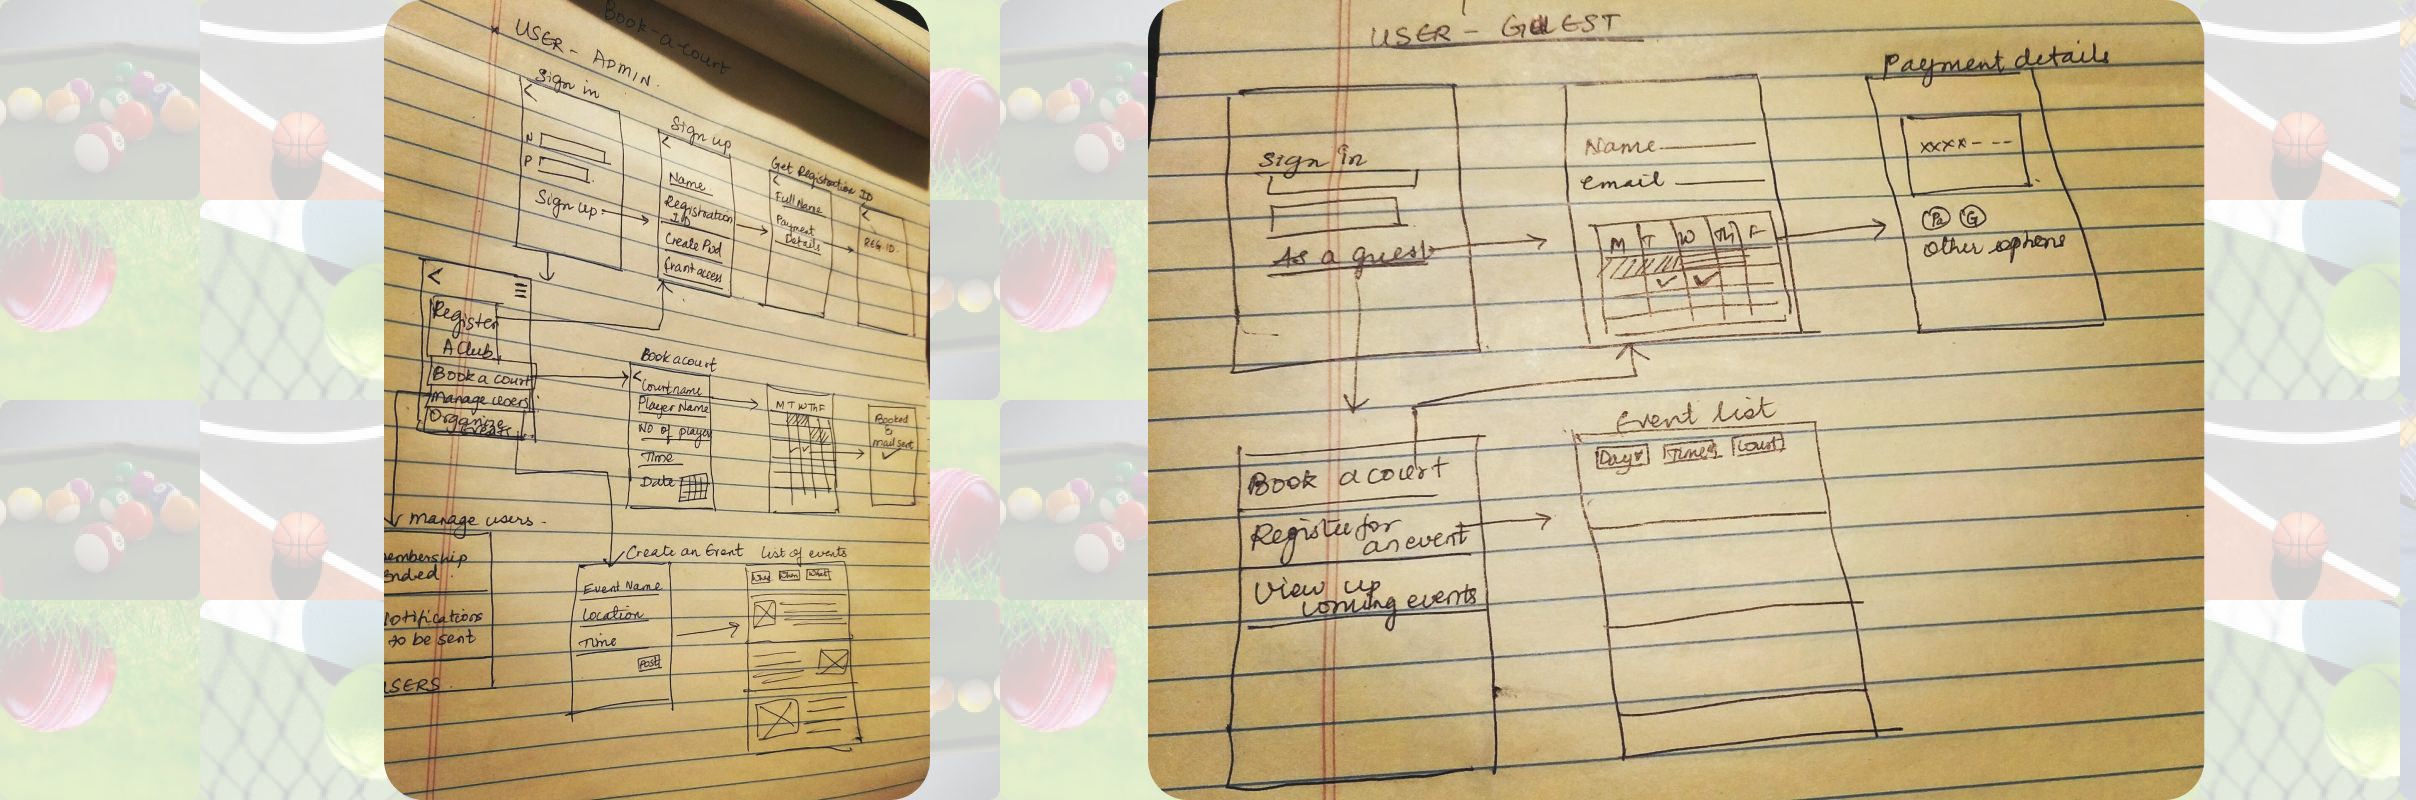 Book-a-court
USER - ADMIN.
Sign in
N
P
Sign up
Sign up
Name
Registration
ID
Create Pwd
Grant access
Get Registration ID
Full Name
Payment
Details
REG.ID.
Register
A Club
Book a court
Manage users
Organize
Events
Book a court
Court name
Player Name
NO of player
Time
Date
M T W Th F
Booked
&
mail sent
Manage users -
embership
Ended.
Notifications
to be sent
USERS
Create an Event
Event Name
Location
Time
Post
List of events
When
What
USER - GUEST
Sign in
As a guest
Name
email
M T W Th F
Payment details
xxxx - - -
Pa G
other options
Book a court
Register for
an event
View up
coming events
Event list
Day Time Court